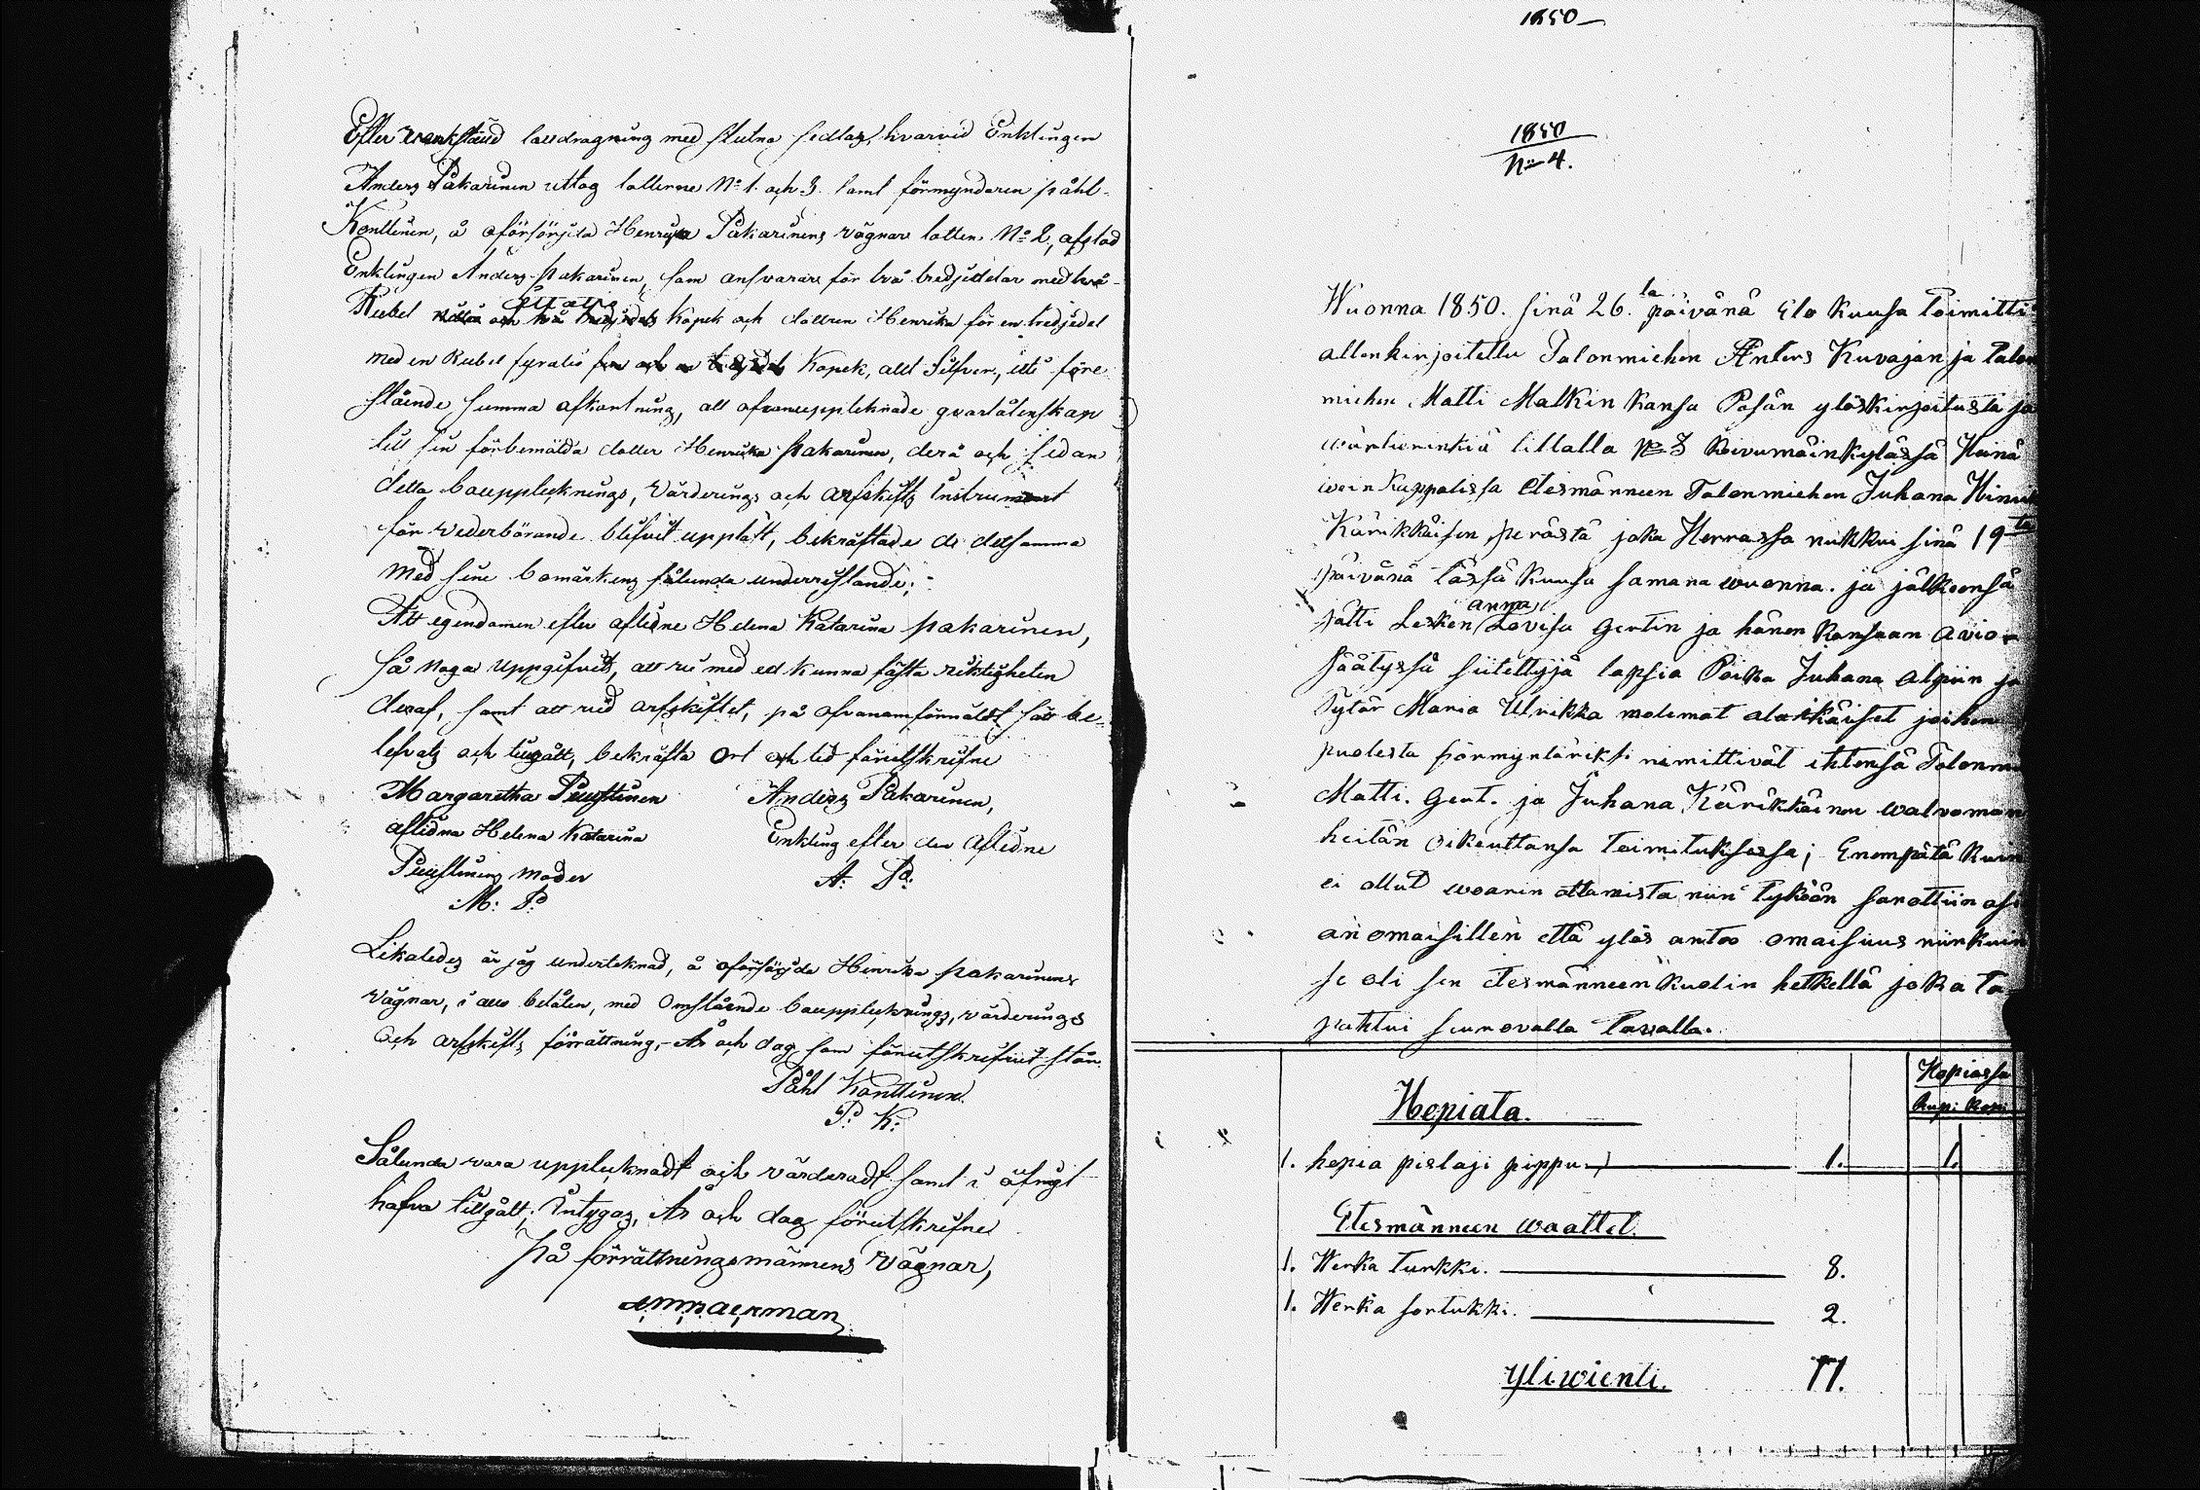 1850
Efter verkstäld lottdragning med slutna sedlar, hvarvid Enklingen
Anders Pakarinen uttog lotterne No 1. och 3. samt förmyndaren påhl
Konttinen, å oförsörjda Henrika Pakarinens vägnar lotten No 2, afstod
Enklingen Anders Pakarinen, som ansvarar för två tredjedelar med två
Rubel åttatio kopek och dottren Henrika för en tredjedel
med en Rubel fyratio Kopek, allt Silfver, ifrå före
stående summa afkortning, all ofvanupptecknade qvarlåtenskap
till sin förbemälda dotter Henrika Pakarinen, derå och sedan
detta boupptecknings, Värderings och arfskifts Instrument
för vederbörande blifvit uppläst, bekräftade de detsamma
med sine bomärkens sålunda underristande:
Att egendomen efter aflidne Helena Katarina Pakarinen,
så noga uppgifvits, att vi med ed kunna fästa riktigheten
deraf, samt att vid arfskiftet, på ofvananförmäldt sätt be-
lefvats och tillgått, bekräfta Ort och tid förutskrifne
Margaretha Puustinen Anders Pakarinen,
aflidna Helena Katarina Enkling efter den Aflidne
Puustinens moder A: P:
M: P:
Likaledes är jag undertecknad, å oförsörjda Henrika Pakarinens
vägnar, i allo belåten, med Omstående boupptecknings, värderings
och arfskifts förrättning, År och dag som förutskrifvit står.
Påhl Konttinen
P: K:
Sålunda vara upptecknadt och värderadt samt i öfrigt
hafva tillgått; Intygas, År och dag förutskrifne
På förrättningsmännens Vägnar,
1850
No 4.
Wuonna 1850. sinä 26.ta päivänä Elo kuusa toimitti
allenkirjoitettu Talonmiehen Anters Kuvajan ja talon
miehen Matti Malkin kansa Pesän ylöskirjoitusta ja
wärtierinkiä tillalla No 3 Koivumäinkylässä Heinä
wein kappalissa Etesmänneen Talonmiehen Juhana Hinrik
Kärikkäisen perästä joka Herrassa nukkui sinä 19ta
päivänä tässä kuusa samana wuonna. ja jälkeensä
jätti Lesken anna Lovisa Gertin ja hänen kansaan avio
säätyssä siitettyjä lapsia Poika Juhana Alpiin ja
Tytär Maria Ulrikka molemat alaikäiset joihen
puolesta förmyntäriksi nimittivät ihtensä Talonm
Matti. Gert. ja Juhana Kärikkäinen walvoman
heitän oikeuttansa toimituksessa; Enempätä kuin
ei ollut waarin ottamista niin tyköön sanottiin asi
anomaisillen että ylös antoo omaisuus niinkuin
se oli sen etesmänneen kuolin hetkellä joka ta
pahtui seuraavalla tavalla.
Hopiassa
Hopiata. Rup: Kop:
1. hopia pislaji pippu 1. 1.
Etesmänneen waattet.
1. Werka turkki. 8.
1. Werka sortukki. 2.
Yliwienti. 11.